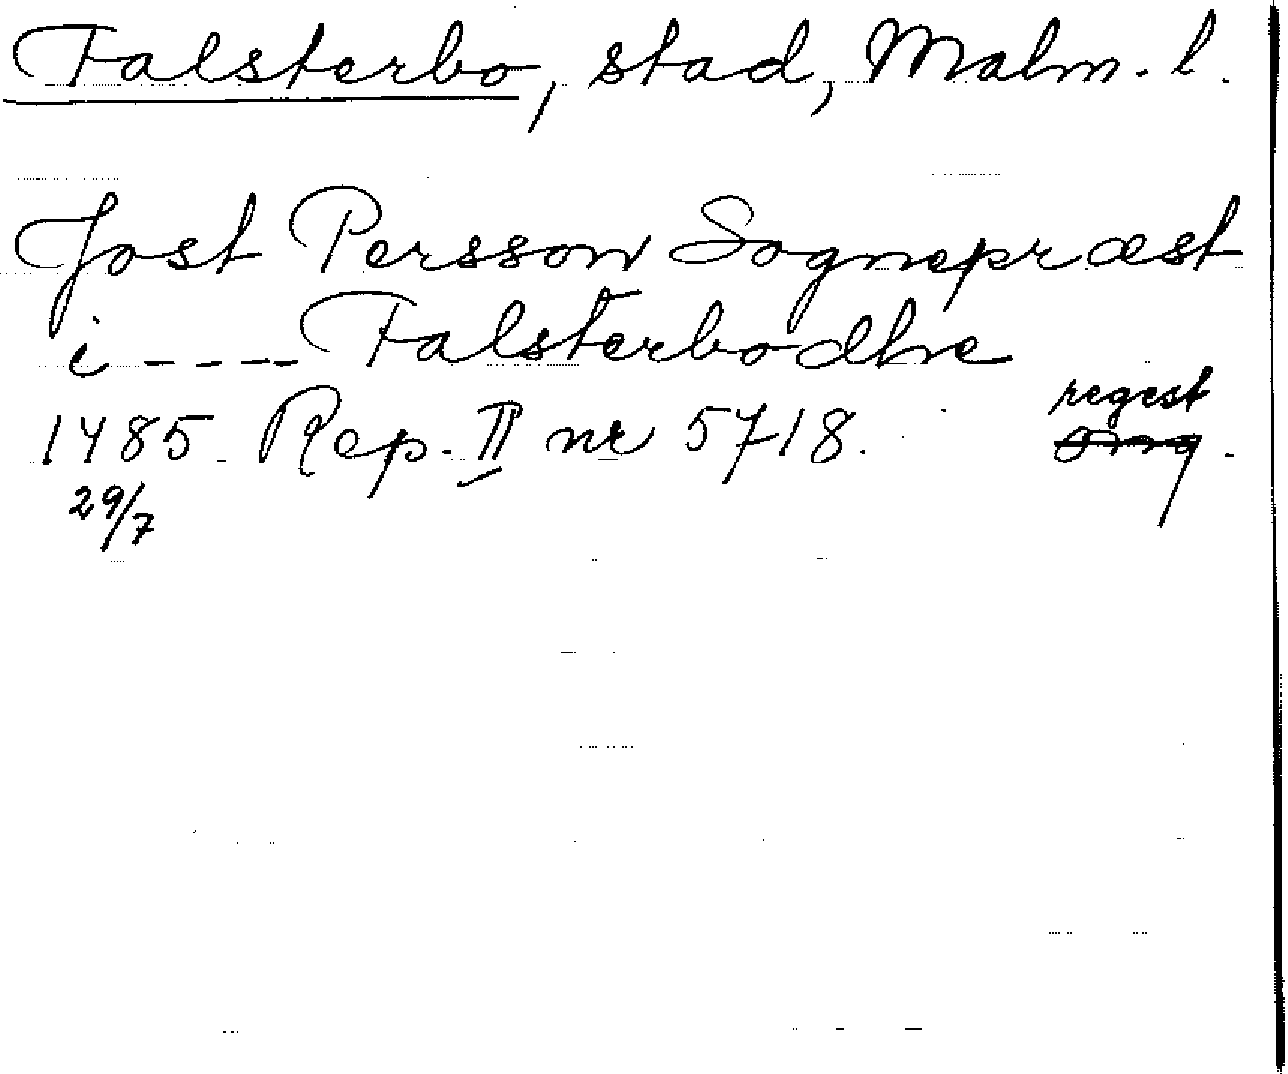 Falsterbo, stad, Malm. l.
Jost Persson Sognepræst
i ---- Falsterbodhe
regest
1485. Rep. II nr 5718. orig.
29/7